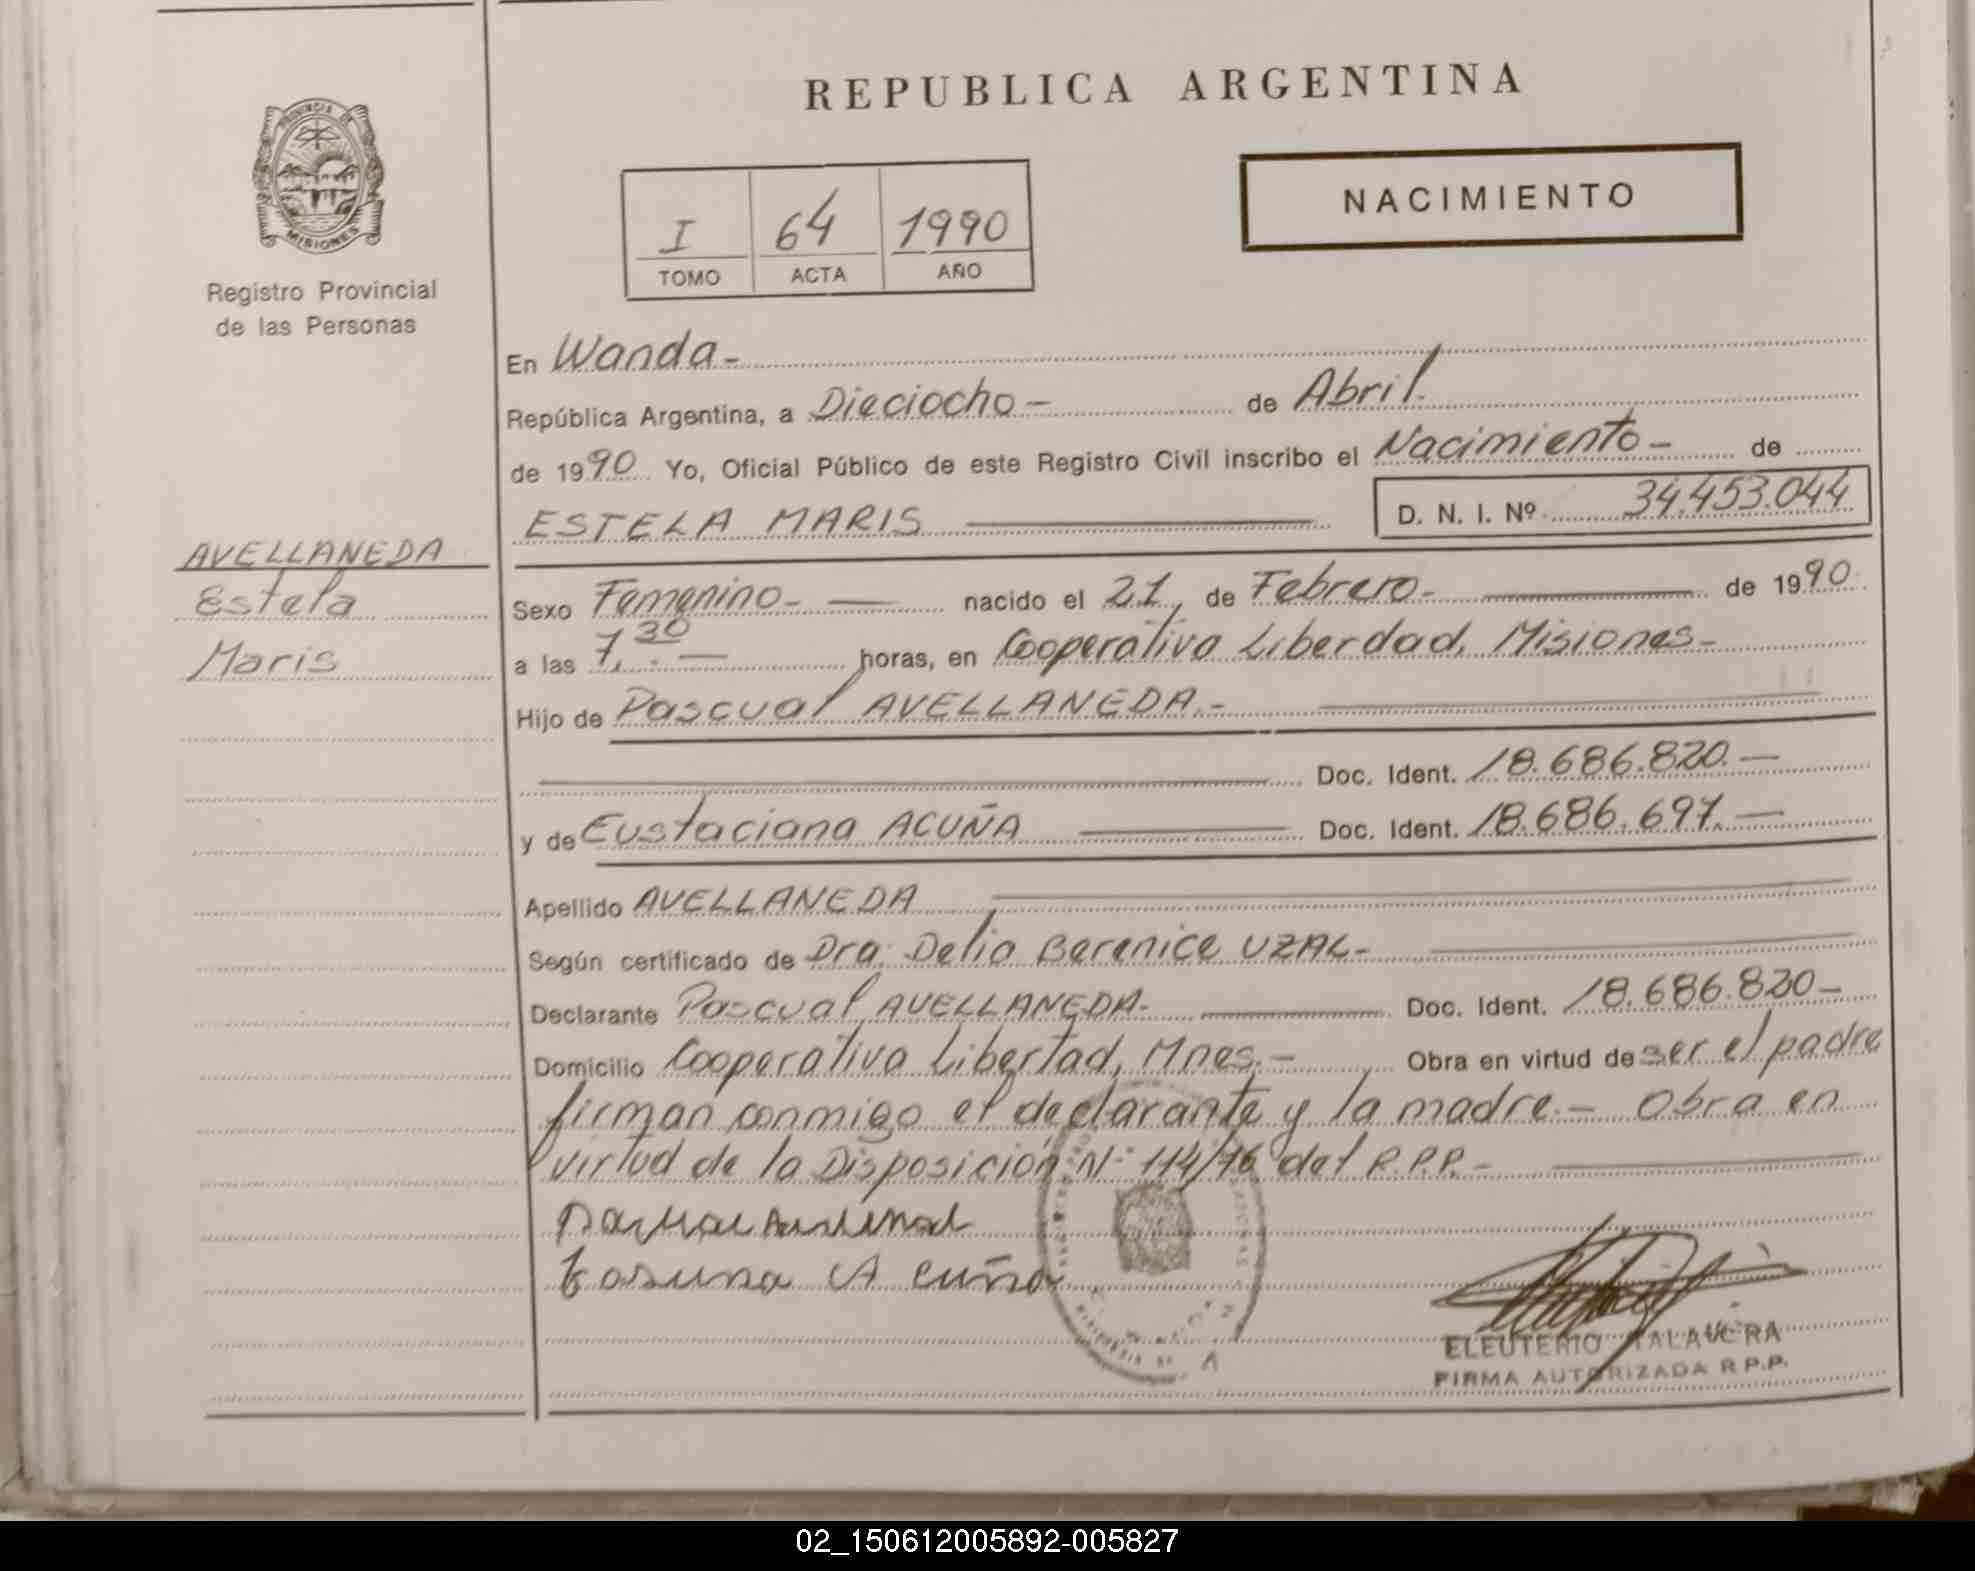 REPUBLICA ARGENTINA
PROVINCIA DE
MISIONES
Registro Provincial
de las Personas
NACIMIENTO
I 64 1990
TOMO ACTA AÑO
En Wanda-
República Argentina, a Dieciocho - de Abril.
de 1990 Yo, Oficial Público de este Registro Civil inscribo el Nacimiento - de
ESTELA MARIS D. N. I. Nº 34.453.044
AVELLANEDA
Estela
Maris
Sexo Femenino- nacido el 21, de Febrero- de 1990.
a las 7,30 horas, en Cooperativa Liberdad, Misiones-
Hijo de Pascual AVELLANEDA.-
Doc. Ident. 18.686.820.-
y de Eustaciana ACUÑA Doc. Ident. 18.686.697.-
Apellido AVELLANEDA
Según certificado de Dra. Delia Berenice UZAL-
Declarante Pascual AVELLANEDA- Doc. Ident. 18.686.820-
Domicilio Cooperativa Libertad, Mnes.- Obra en virtud de ser el padre
firman conmigo el declarante y la madre.- Obra en
virtud de la Disposición Nº 114/76 del R.P.P.-
Acuña
ELEUTERIO TALAVERA
FIRMA AUTORIZADA R.P.P.
02_150612005892-005827